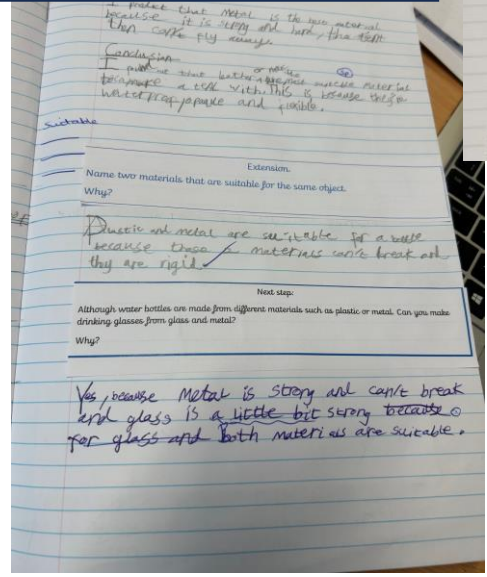 I predict that metal is the best material
because it is strong and hard, the tent
then can't fly away.
Conclusion
I that leather or are most suitable material
to make a tent with. This is because
waterproof, opaque and flexible.
Suitable
Extension
Name two materials that are suitable for the same object.
Why?
Plastic and metal are suitable for a bottle
because these materials can't break and
they are rigid.
Next step:
Although water bottles are made from different materials such as plastic or metal. Can you make
drinking glasses from glass and metal?
Why?
Yes, because Metal is strong and can't break
and glass is a little bit strong because
for glass and Both materials are suitable.